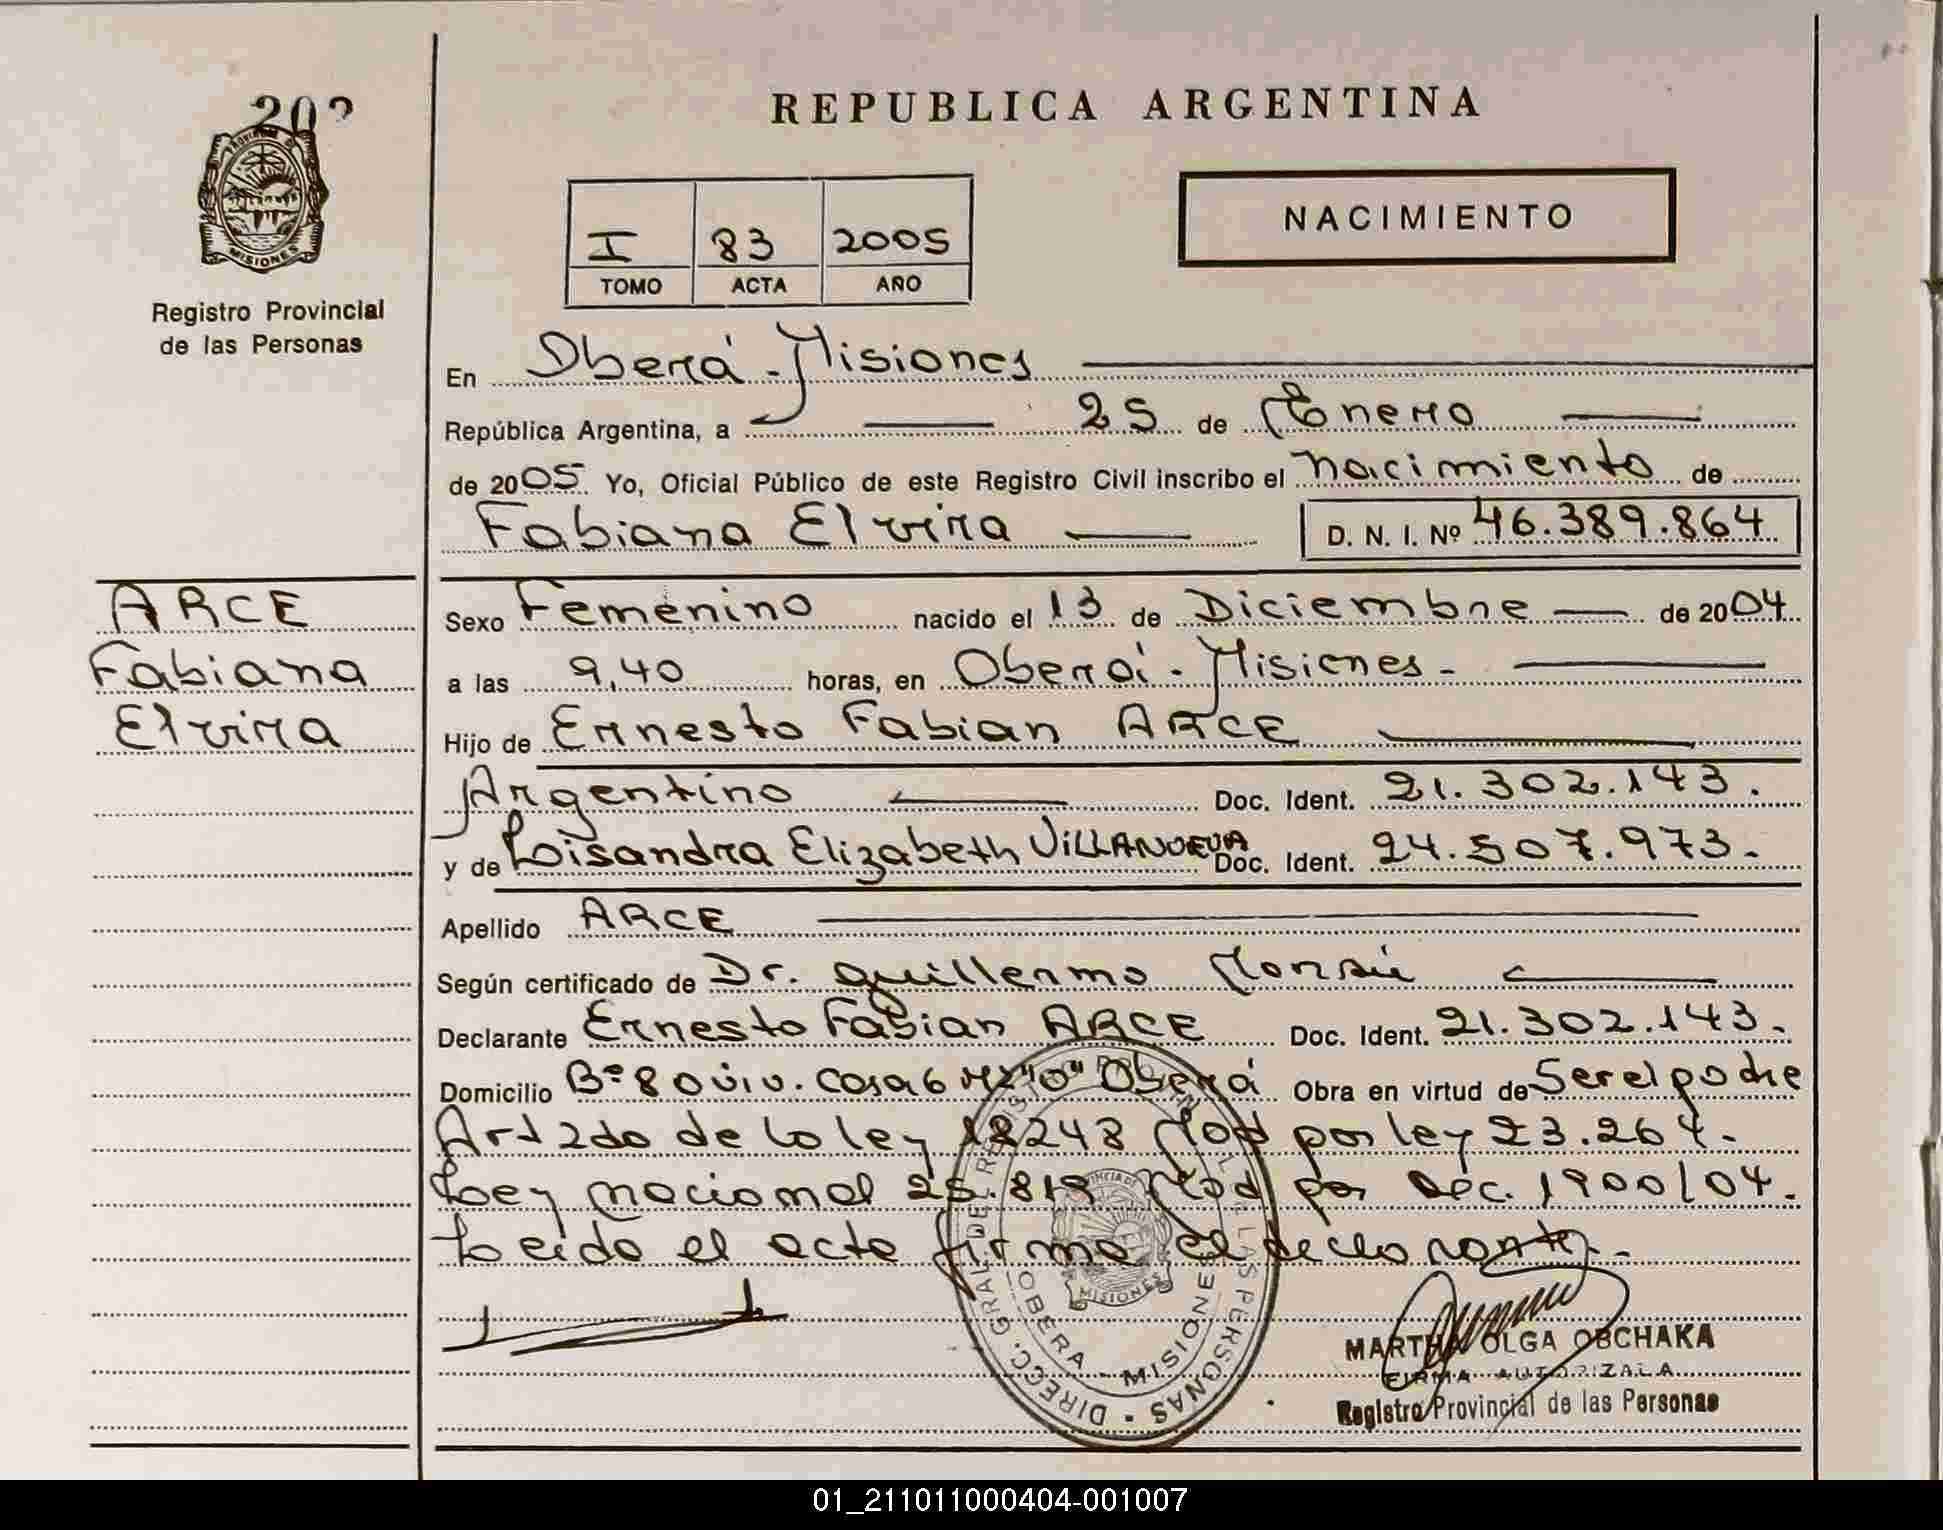 REPUBLICA ARGENTINA
PROVINCIA DE
MISIONES
Registro Provincial
de las Personas
I 83 2005
TOMO ACTA AÑO
NACIMIENTO
En Oberá - Misiones
República Argentina, a 25 de Enero
de 2005 Yo, Oficial Público de este Registro Civil inscribo el nacimiento de
Fabiana Elvira D. N. I. Nº 46.389.864
ARCE
Fabiana
Elvira
Sexo Femenino nacido el 13 de Diciembre de 2004
a las 9,40 horas, en Oberá - Misiones -
Hijo de Ernesto Fabian ARCE
Argentino Doc. Ident. 21.302.143.
y de Lisandra Elizabeth VILLANUEVA Doc. Ident. 24.507.973.
Apellido ARCE
Según certificado de Dr. Guillermo
Declarante Ernesto Fabian ARCE Doc. Ident. 21.302.143.
Domicilio Bº 80 viv. Casa 6 Mz "O" Oberá Obra en virtud de Ser el padre
Art 2do de la ley 18248 Mod por ley 23.264.
Ley nacional 25.819 Mod por Dec. 1900/04.
Leido el acta firma el declarante.-
DIRECC. GRAL. DEL REGISTRO PROVINCIAL DE LAS PERSONAS
OBERA - MISIONES
MISIONES
MARTHA OLGA OBCHAKA
FIRMA AUTORIZADA
Registro Provincial de las Personas
01_211011000404-001007